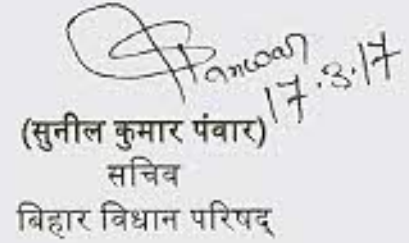 Panwar
17.3.17
(सुनील कुमार पंवार)
सचिव
बिहार विधान परिषद्